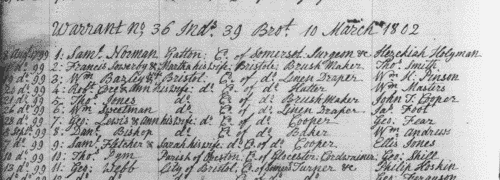 Warrant No. 36 Ind. 39 Brot. 10 March 1802
99 1: Saml. Norman Yatton Co. of Somerset Surgeon & Hezekiah Holyman
do. 99 2: Francis & Martha his wife Bristol Brush Maker Thos. Smith
do. 99 3: Wm. Bristol Co. of do. Linen Draper Wm. K. Pinson
do. 99 4: Robt. & Ann his wife do. Co. of do. Hatter Wm. Masters
do. 99 5: Thos. Jones do. Co. of do. Brush Maker John T. Cooper
do. 99 6: Wm. Sweetman do. Co. of do. Linen Draper Jas. Foot
do. 99 7: Geo. Lewis & Ann his wife do. Co. of do. Cooper Geo. Fear
99 8: Danl. Bishop do. Co. of do. Baker Wm. Andrews
do. 99 9: Saml. Fletcher & Sarah his wife do. Co. of do. Cooper Ellis Jones
do. 99 10: Thos. Pym Parish of Co. of Glocester Cordwainer Geo.
do. 99 11: Geo. Webb City of Bristol Co. of Turner & Philip Hoskin
Geo. Ferguson